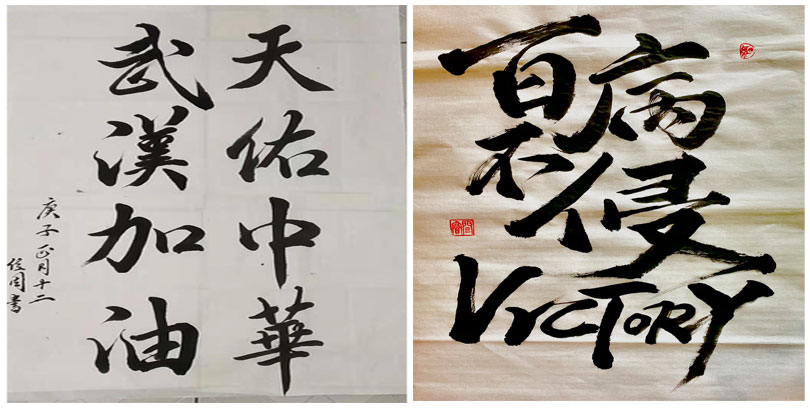 天佑中華
武漢加油
庚子正月十二
書
百病
不侵
VICTORY